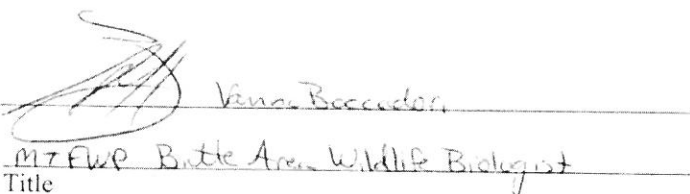 Vanna Boccadori
MT FWP Butte Area Wildlife Biologist
Title